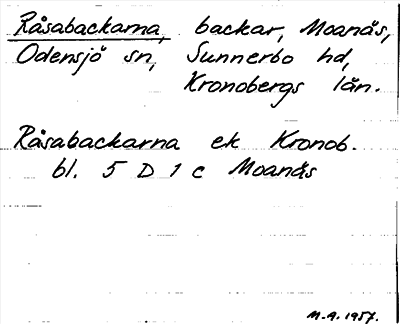 Råsabackarna, backar, Moanäs,
Odensjö sn, Sunnerbo hd,
Kronobergs län.
Råsabackarna ek Kronob.
bl. 5 D 1 c Moanäs
M-A. 1957.